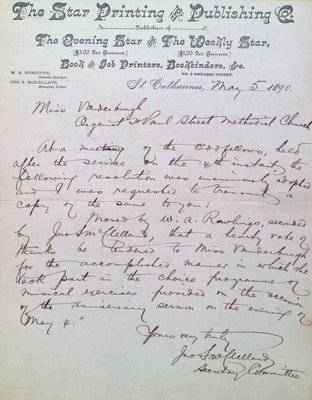 The Star Printing and Publishing Co.
Publishers of
The Evening Star and The Weekly Star,
($3.00 Per Annum) ($1.00 Per Annum)
Book and Job Printers, Bookbinders, &c.
W. B. BURGOYNE,
Business Manager
JNO. S. McCLELLAND,
Managing Editor
NO. 3 ONTARIO STREET,
St. Catharines, May 5 1890.
Miss Vanderburgh
Organist St Paul Street Methodist Church
At a meeting of the Oddfellows, held
after the service on the 4th instant, the
following resolution was unanimously adopted
and I was requested to transmit a
copy of the same to you:
"Moved by W. A. Rawlings, seconded
by Jno S McClelland, that a hearty vote of
thanks be tendered to Miss Vanderburgh
for the accomplished manner in which she
took part in the choice programme of
musical exercises provided on the occasion
of the anniversary sermon on the evening of
May 4."
Yours very truly
Jno S McClelland
Secretary Committee